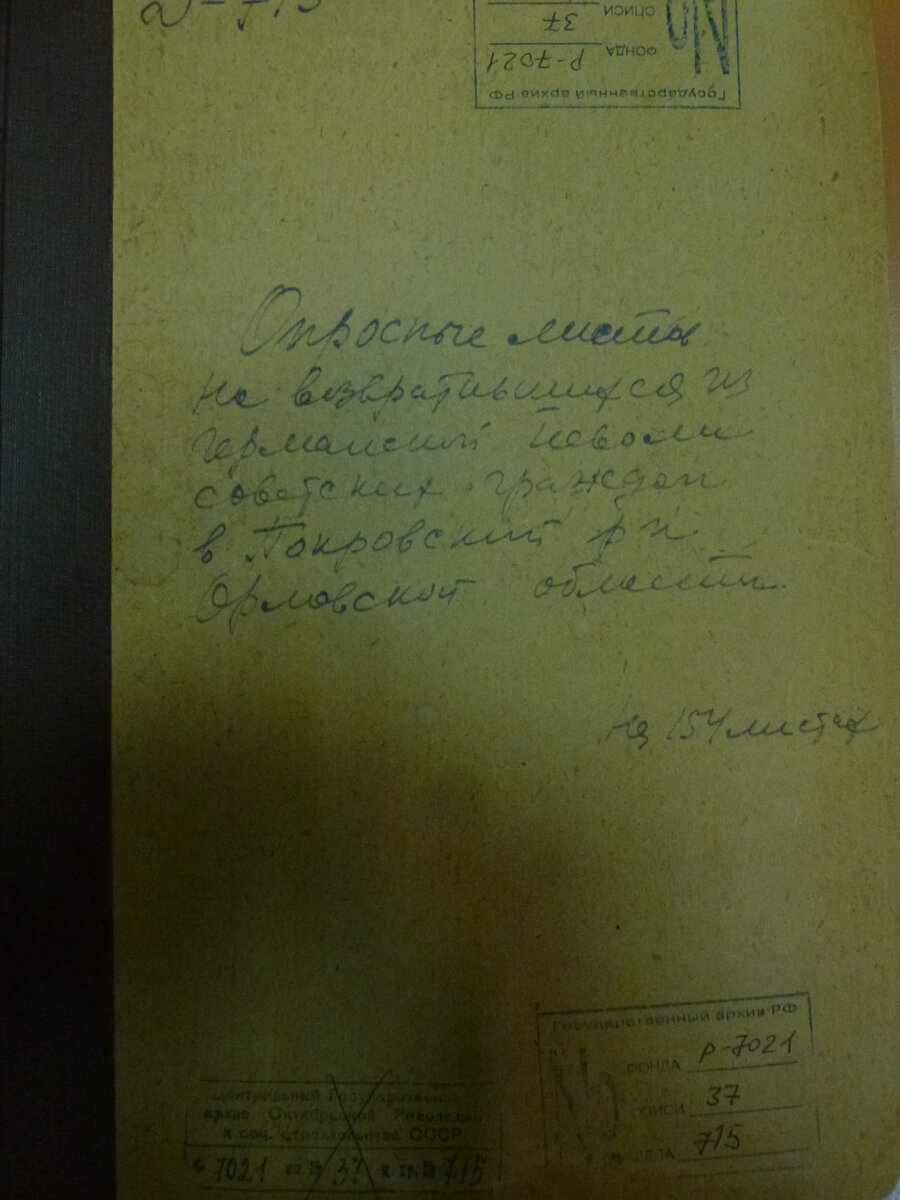 Д-715
Государственный архив РФ
ФОНДА Р-7021
ОПИСИ 37
№
Опросные листы
на возвратившихся из
германской неволи
советских граждан
в Покровский р-н
Орловской области.
На 154 листах
Государственный архив РФ
№ ФОНДА Р-7021
ОПИСИ 37
ДЕЛА 715
Центральный Государствен.
архив Октябрьской Революции
и соц. строительства СССР
7021 37 715